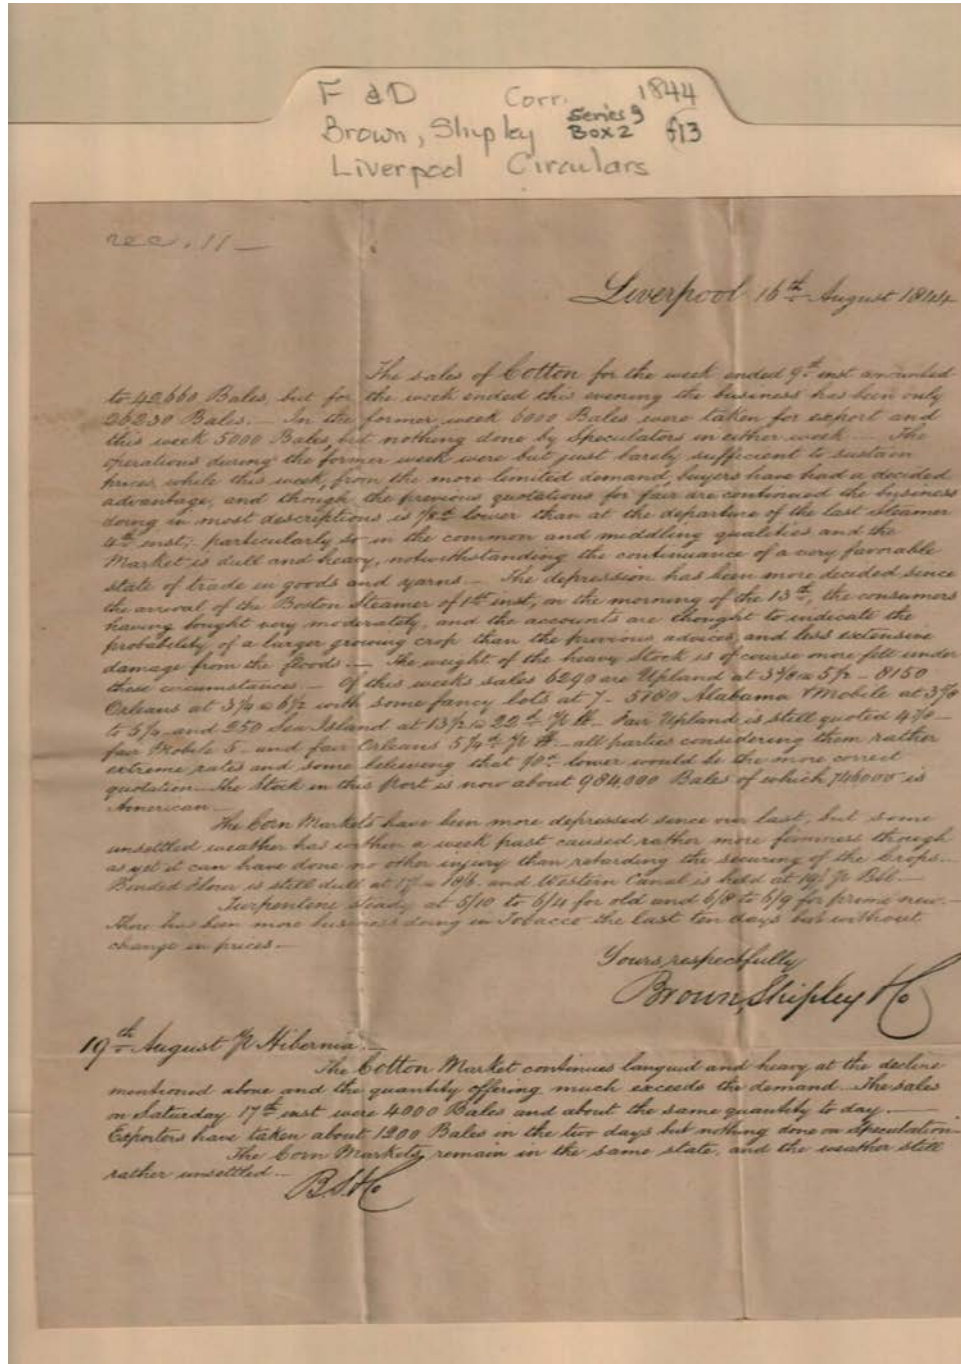 F & D Corr. 1844
Brown, Shipley Series 9 Box 2 f13
Liverpool Circulars
rec. 11
Liverpool 16th August 1844
The sales of Cotton for the week ended 9th inst amounted
to 42,660 Bales, but for the week ended this evening the business has been only
26230 Bales.— In the former week 6000 Bales were taken for export and
this week 5000 Bales, but nothing done by Speculators in either week — The
operations during the former week were but just barely sufficient to sustain
prices, while this week, from the more limited demand, buyers have had a decided
advantage, and though the previous quotations for fair are continued the business
doing in most descriptions is 1/8d lower than at the departure of the last Steamer
4th inst; particularly so in the common and middling qualities and the
Market is dull and heavy, notwithstanding the continuance of a very favorable
state of trade in goods and yarns — The depression has been more decided since
the arrival of the Boston Steamer of 1st inst, on the morning of the 13th, the consumers
having bought very moderately, and the accounts are thought to indicate the
probability of a larger growing crop than the previous advices, and less extensive
damage from the floods.— The weight of the heavy Stock is of course more felt under
these circumstances.— Of this weeks sales 6290 are Upland at 3 5 1/2 – 8150
Orleans at 6 1/2 with some fancy lots at 7 – 5180 Alabama & Mobile at
to and 250 Sea Island at 13 1/2 @ 22d pr lb. Fair Upland is still quoted
fair Mobile 5 – and fair Orleans 5 1/4d pr lb – all parties considering them rather
extreme rates and some believing that lower would be the more correct
quotation — The Stock in this Port is now about 984,000 Bales of which 746000 is
American —
The Corn Markets have been more depressed since our last, but some
unsettled weather has within a week past caused rather more firmness though
as yet it can have done no other injury than retarding the securing of the Crops.—
Bonded Flour is still dull at 17/ @ 18/6 and Western Canal is held at 19/ pr Bbl.—
Turpentine steady at 5/10 to 6/4 for old and 6/8 to 6/9 for prime new.—
There has been more business doing in Tobacco the last ten days but without
change in prices.—
Yours respectfully
Brown, Shipley & Co
19th August pr Hibernia.—
The Cotton Market continues languid and heavy at the decline
mentioned above and the quantity offering much exceeds the demand. The sales
on Saturday 17th inst were 4000 Bales and about the same quantity to day.—
Exporters have taken about 1200 Bales in the two days but nothing done on speculation—
The Corn Markets remain in the same state, and the weather still
rather unsettled —
B. S. & Co